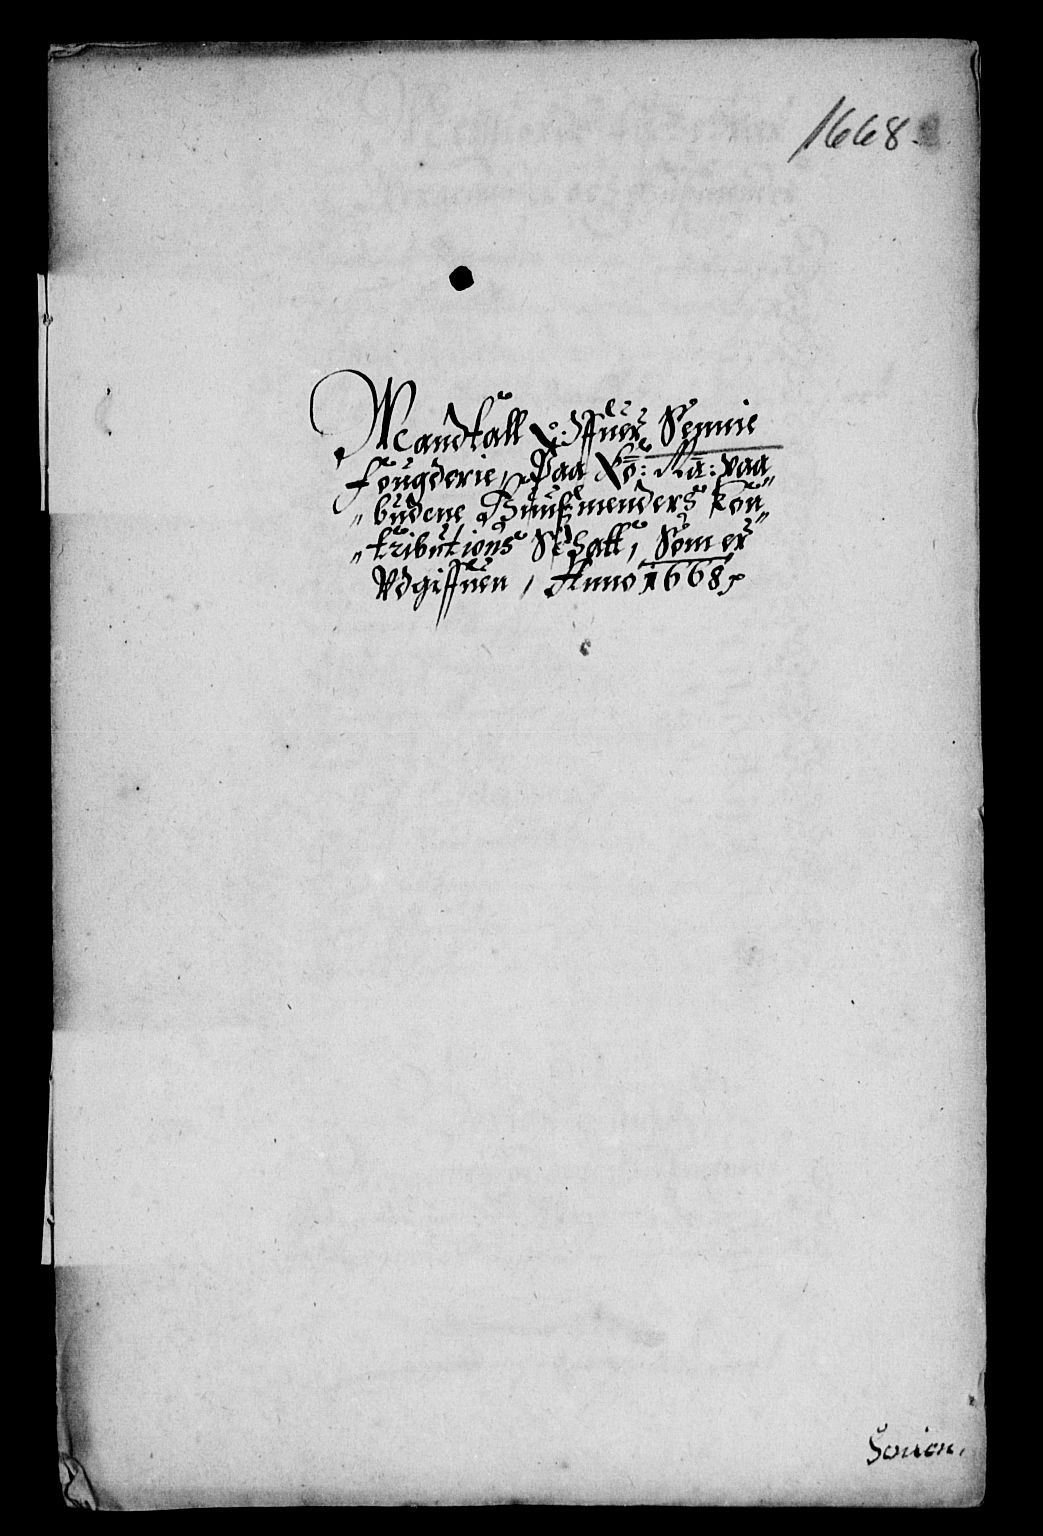 1668.
Mandtall Offuer Sennie
Fougderie, Paa Ko: Ma: paa
"budene Huusmenders Kon"
"tributions Schatt, Som er
Udgiffuen, Anno 1668,
Senien.